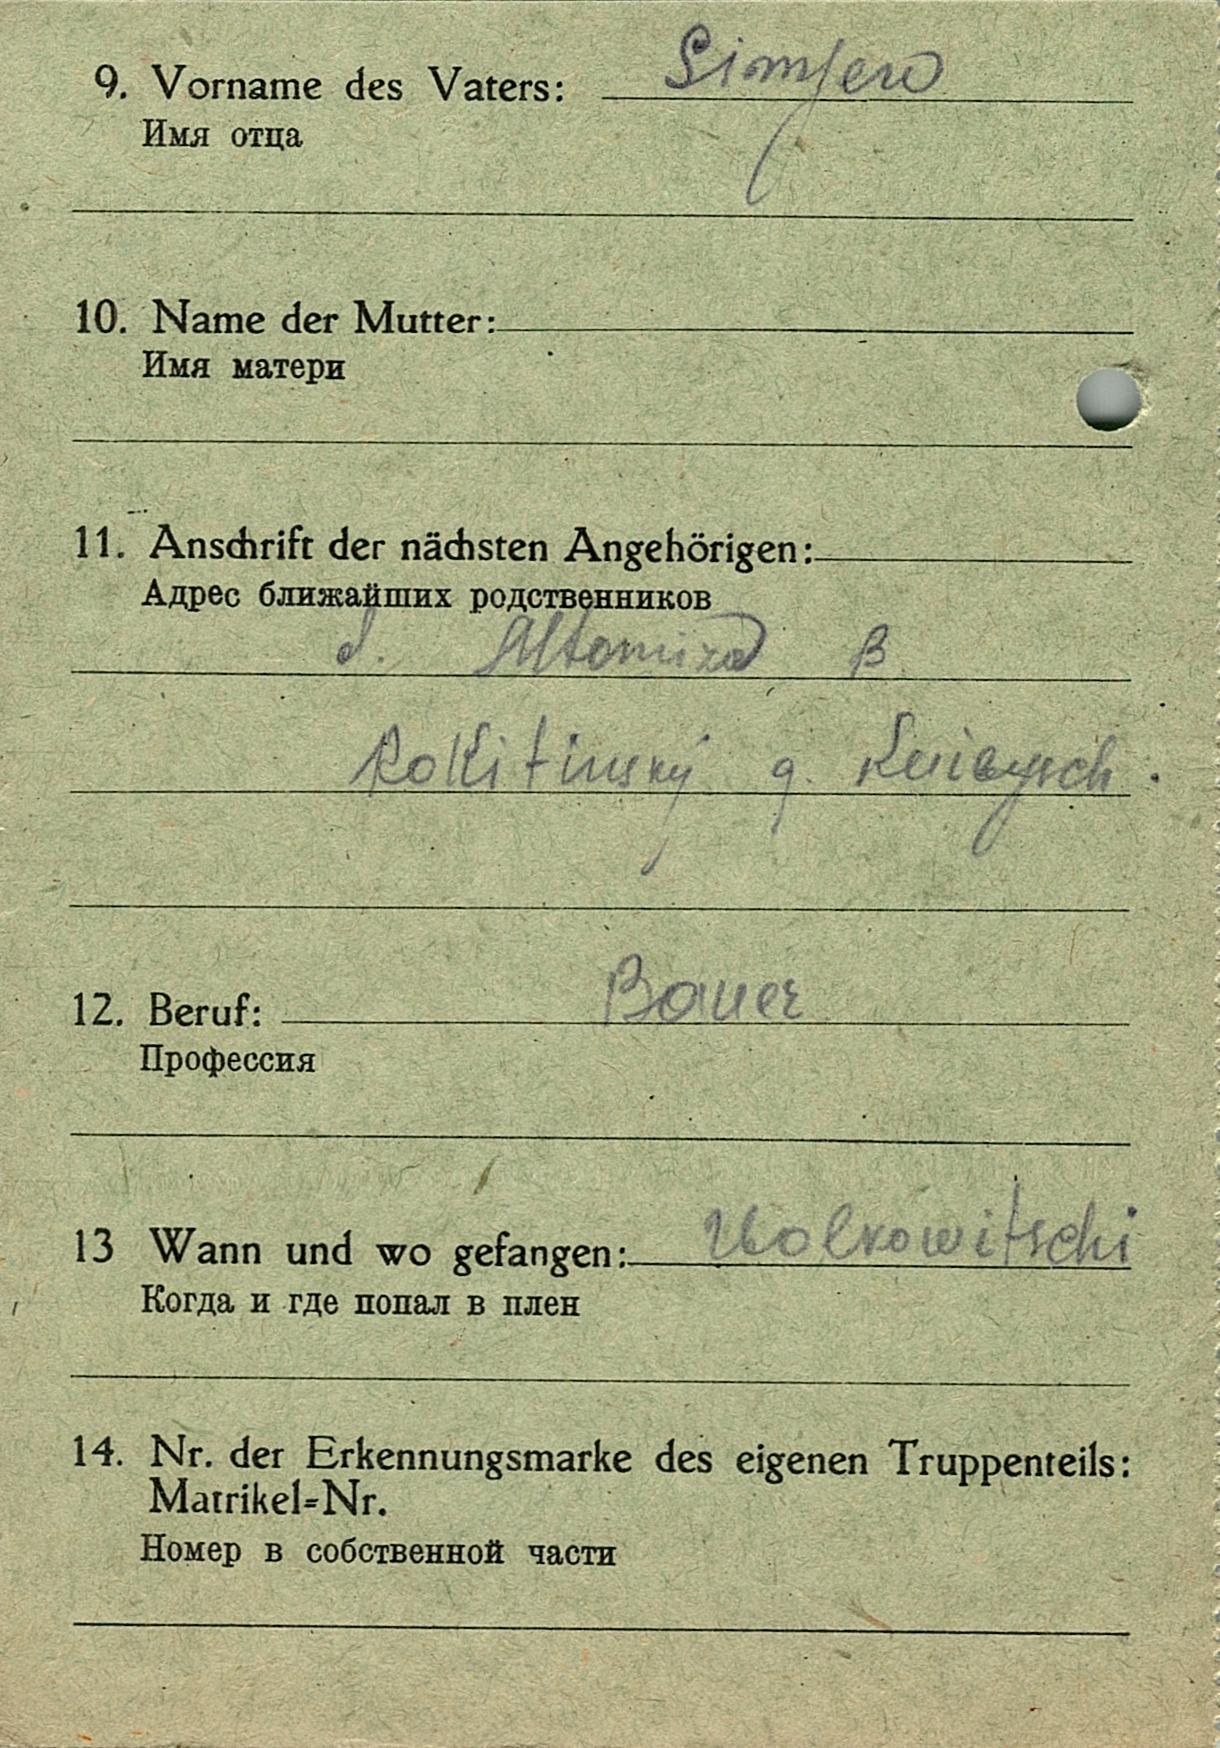 9. Vorname des Vaters: Simfero
Имя отца
10. Name der Mutter:
Имя матери
11. Anschrift der nächsten Angehörigen:
Адрес ближайших родственников
d. B
Rokitinský g. Kuibysch.
12. Beruf: Bauer
Профессия
13 Wann und wo gefangen: Wolkowitschi
Когда и где попал в плен
14. Nr. der Erkennungsmarke des eigenen Truppenteils:
Matrikel=Nr.
Номер в собственной части